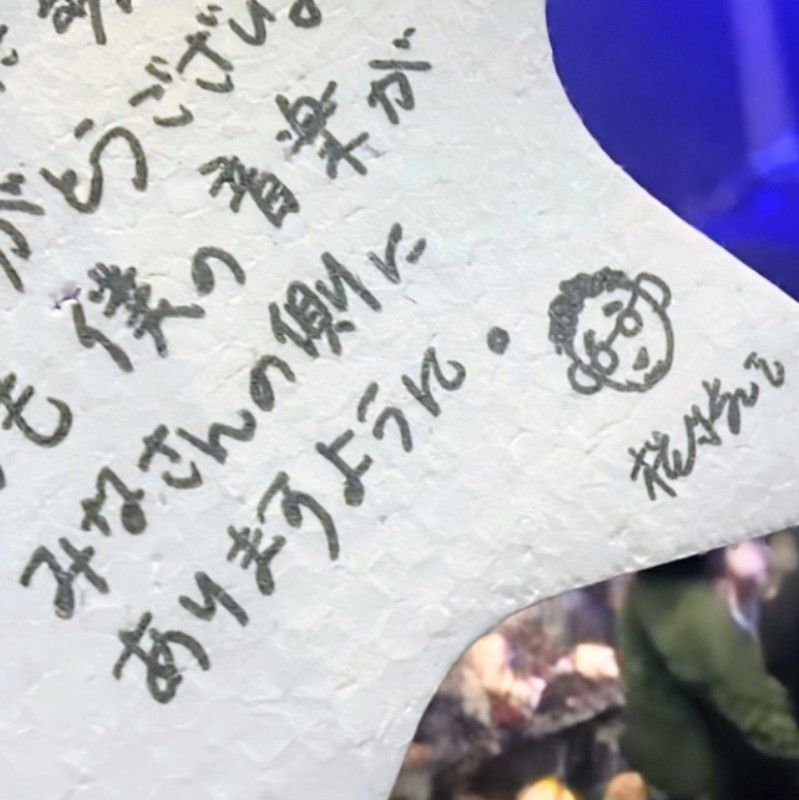 がとうござい
も 僕の音楽が
みなさんの側に
ありますように。